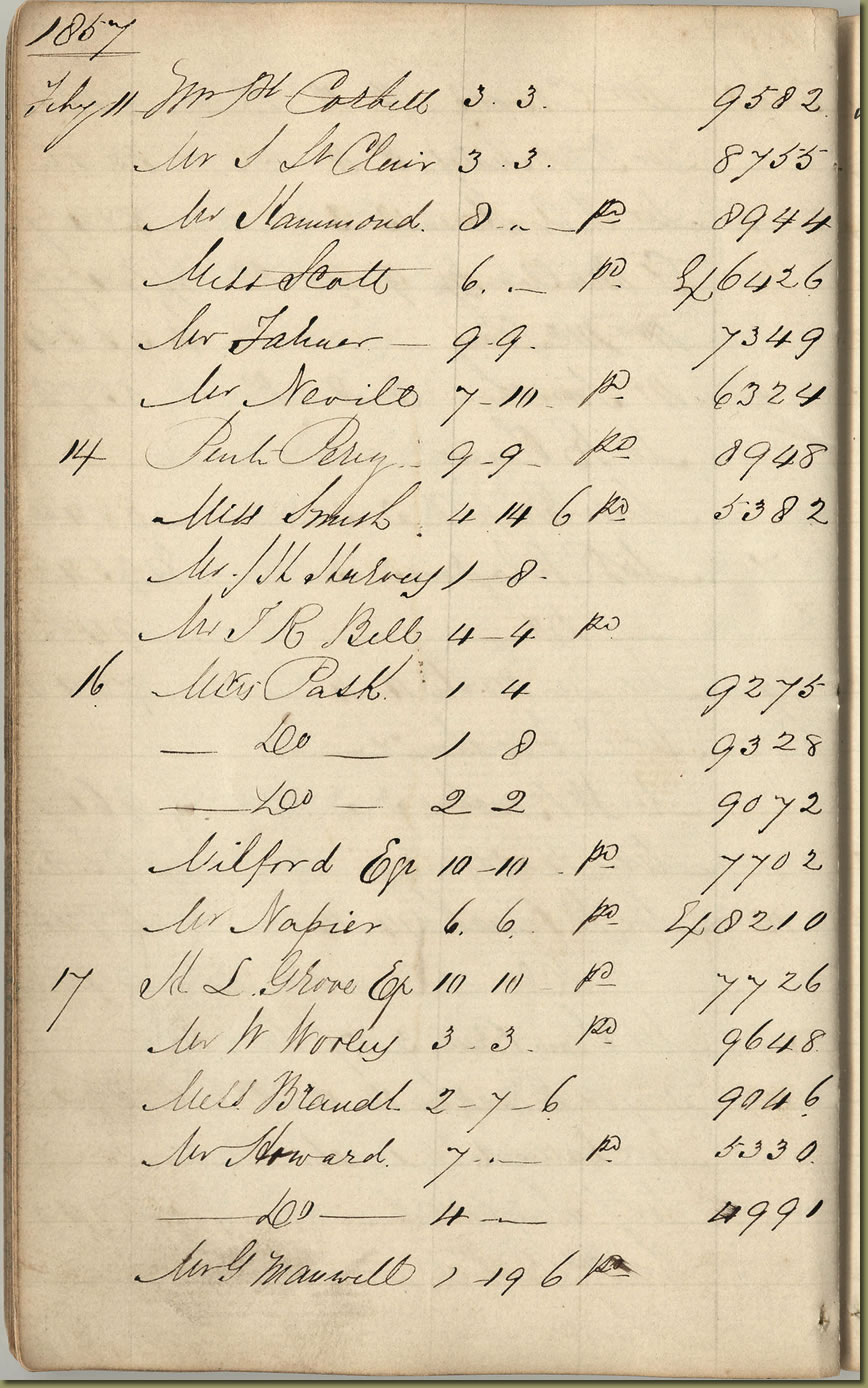 1857
Feby 11 Mr Ht Corbett 3. 3. 9582
Mr S St Clair 3. 3. 8755
Mr Hammond. 8 - " — pd 8944
Miss Scott 6. " — pd Ex 6426
Mr — 9-9. 7349
Mr Nevill 7-10 pd 6324
14 Perry 9-9- pd 8948
Miss 4 14 6 pd 5382
Mr. J H Harvey 1-8-
Mr T R Bell 4-4 pd
16 Pask. 1 4 9275
— Do — 1 8 9328
— Do — 2 2 9072
Milford Eqr 10-10 - pd 7702
Mr Napier 6. 6. pd Ex 8210
17 H L. Grove Eqr 10 10 - pd 7726
Mr W Worley 3. 3. pd 9648
Brandt 2-7-6 9046
Mr Howard. 7 - " — pd 5330
— Do — 4 - — 4991
Mr G Maxwell 1-19 6 pd